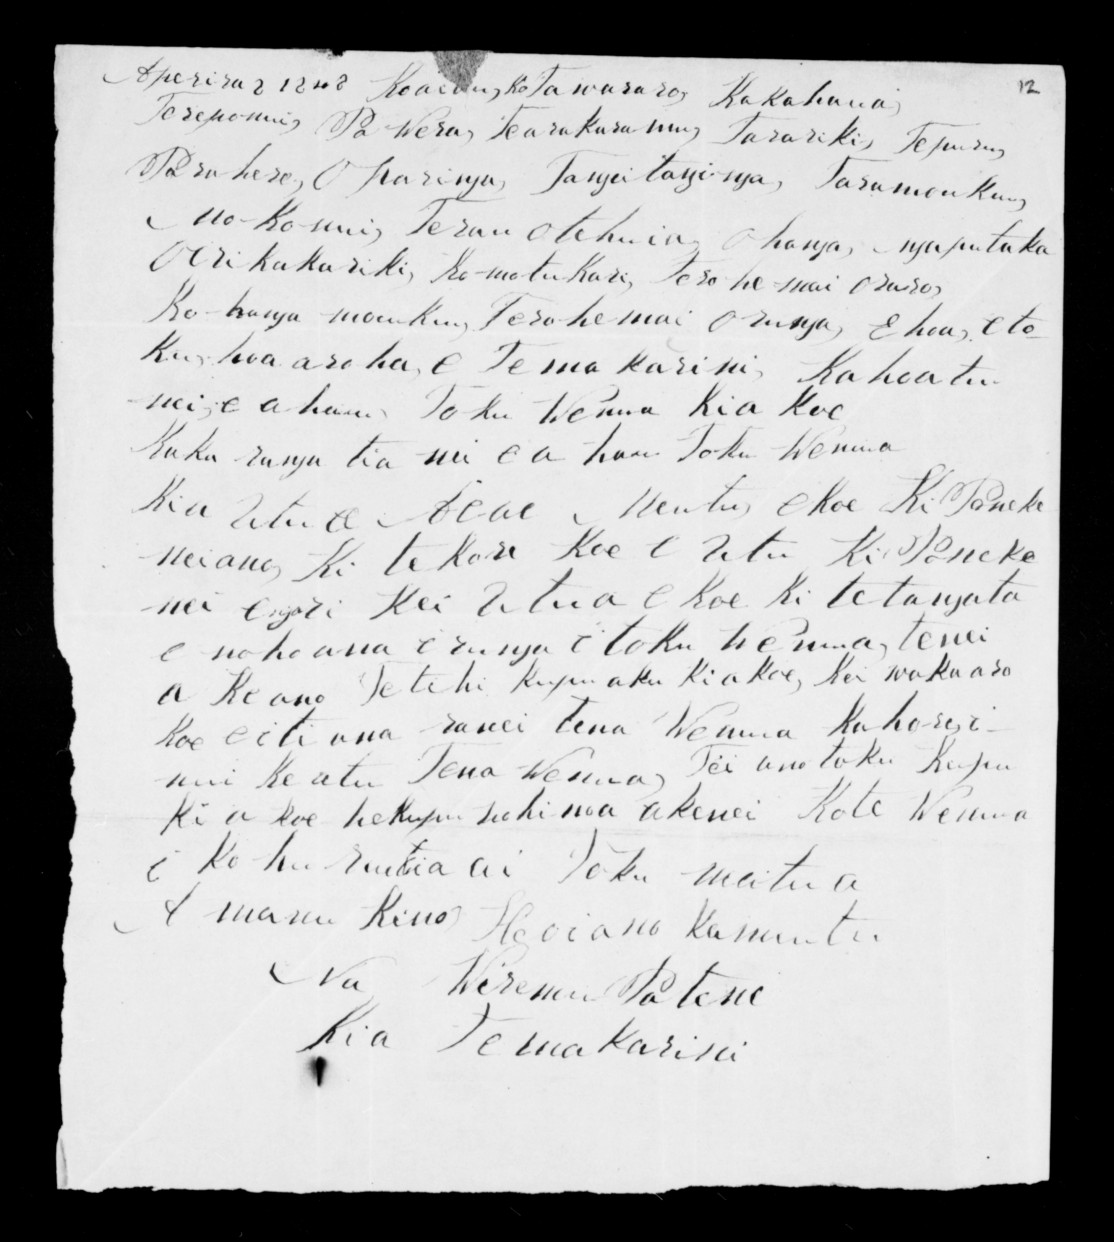 12
Aperira 2 1848 Koaiau, ko Tawararo, Kakahanai,
Tereponui, Pa Wera, Tearakuramu, Tarariki, Tepuru,
Paruhero, Oparinga, Tangitanginga, Taramoukuu,
Mo-ko-nui, Terau otehuia, ohanga, ngaputaka
Oerikakariki, Ko-motukari, Terohe-mai oraro,
Ko-hanga moukuu, Terohemai orunga, E hoa, e to-
ku, hoa aroha, e Te makarini, Kahoatu
nei, e ahau, Toku Wenua kia koe
kuku runga tia nei e a hau Toku Wenua
Kia utu e koe Ki Poneke
neiano, Ki te kore koe e utu Ki Poneke
nei engari kei utua e koe ki te tangata
e noho ana i runga i toku wenua, tenei
a ke ano Tetehi kupu aku kiakoe, kei wakaaro
koe e iti ana ranei tena Wenua kahore, i-
nui ke atu Tena Wenua, Tei ano toku kupu
ki a koe hekupu nohinoa akenei Kote Wenua
i kohurutia ai Toku matua
A manu kino, Heoiano kamutu
Na Wiremu Patene
Kia Temakarini